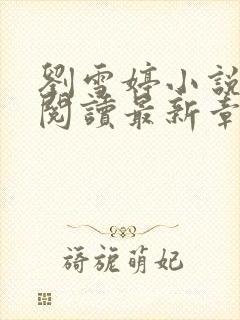 劉雪婷小說
閱讀最新章
旖旎萌妃